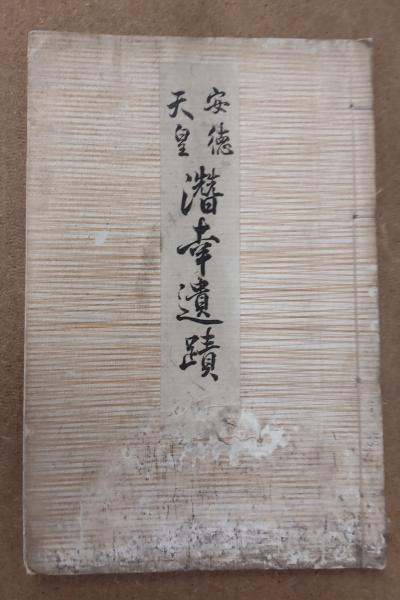 安徳
天皇
潜幸遺蹟